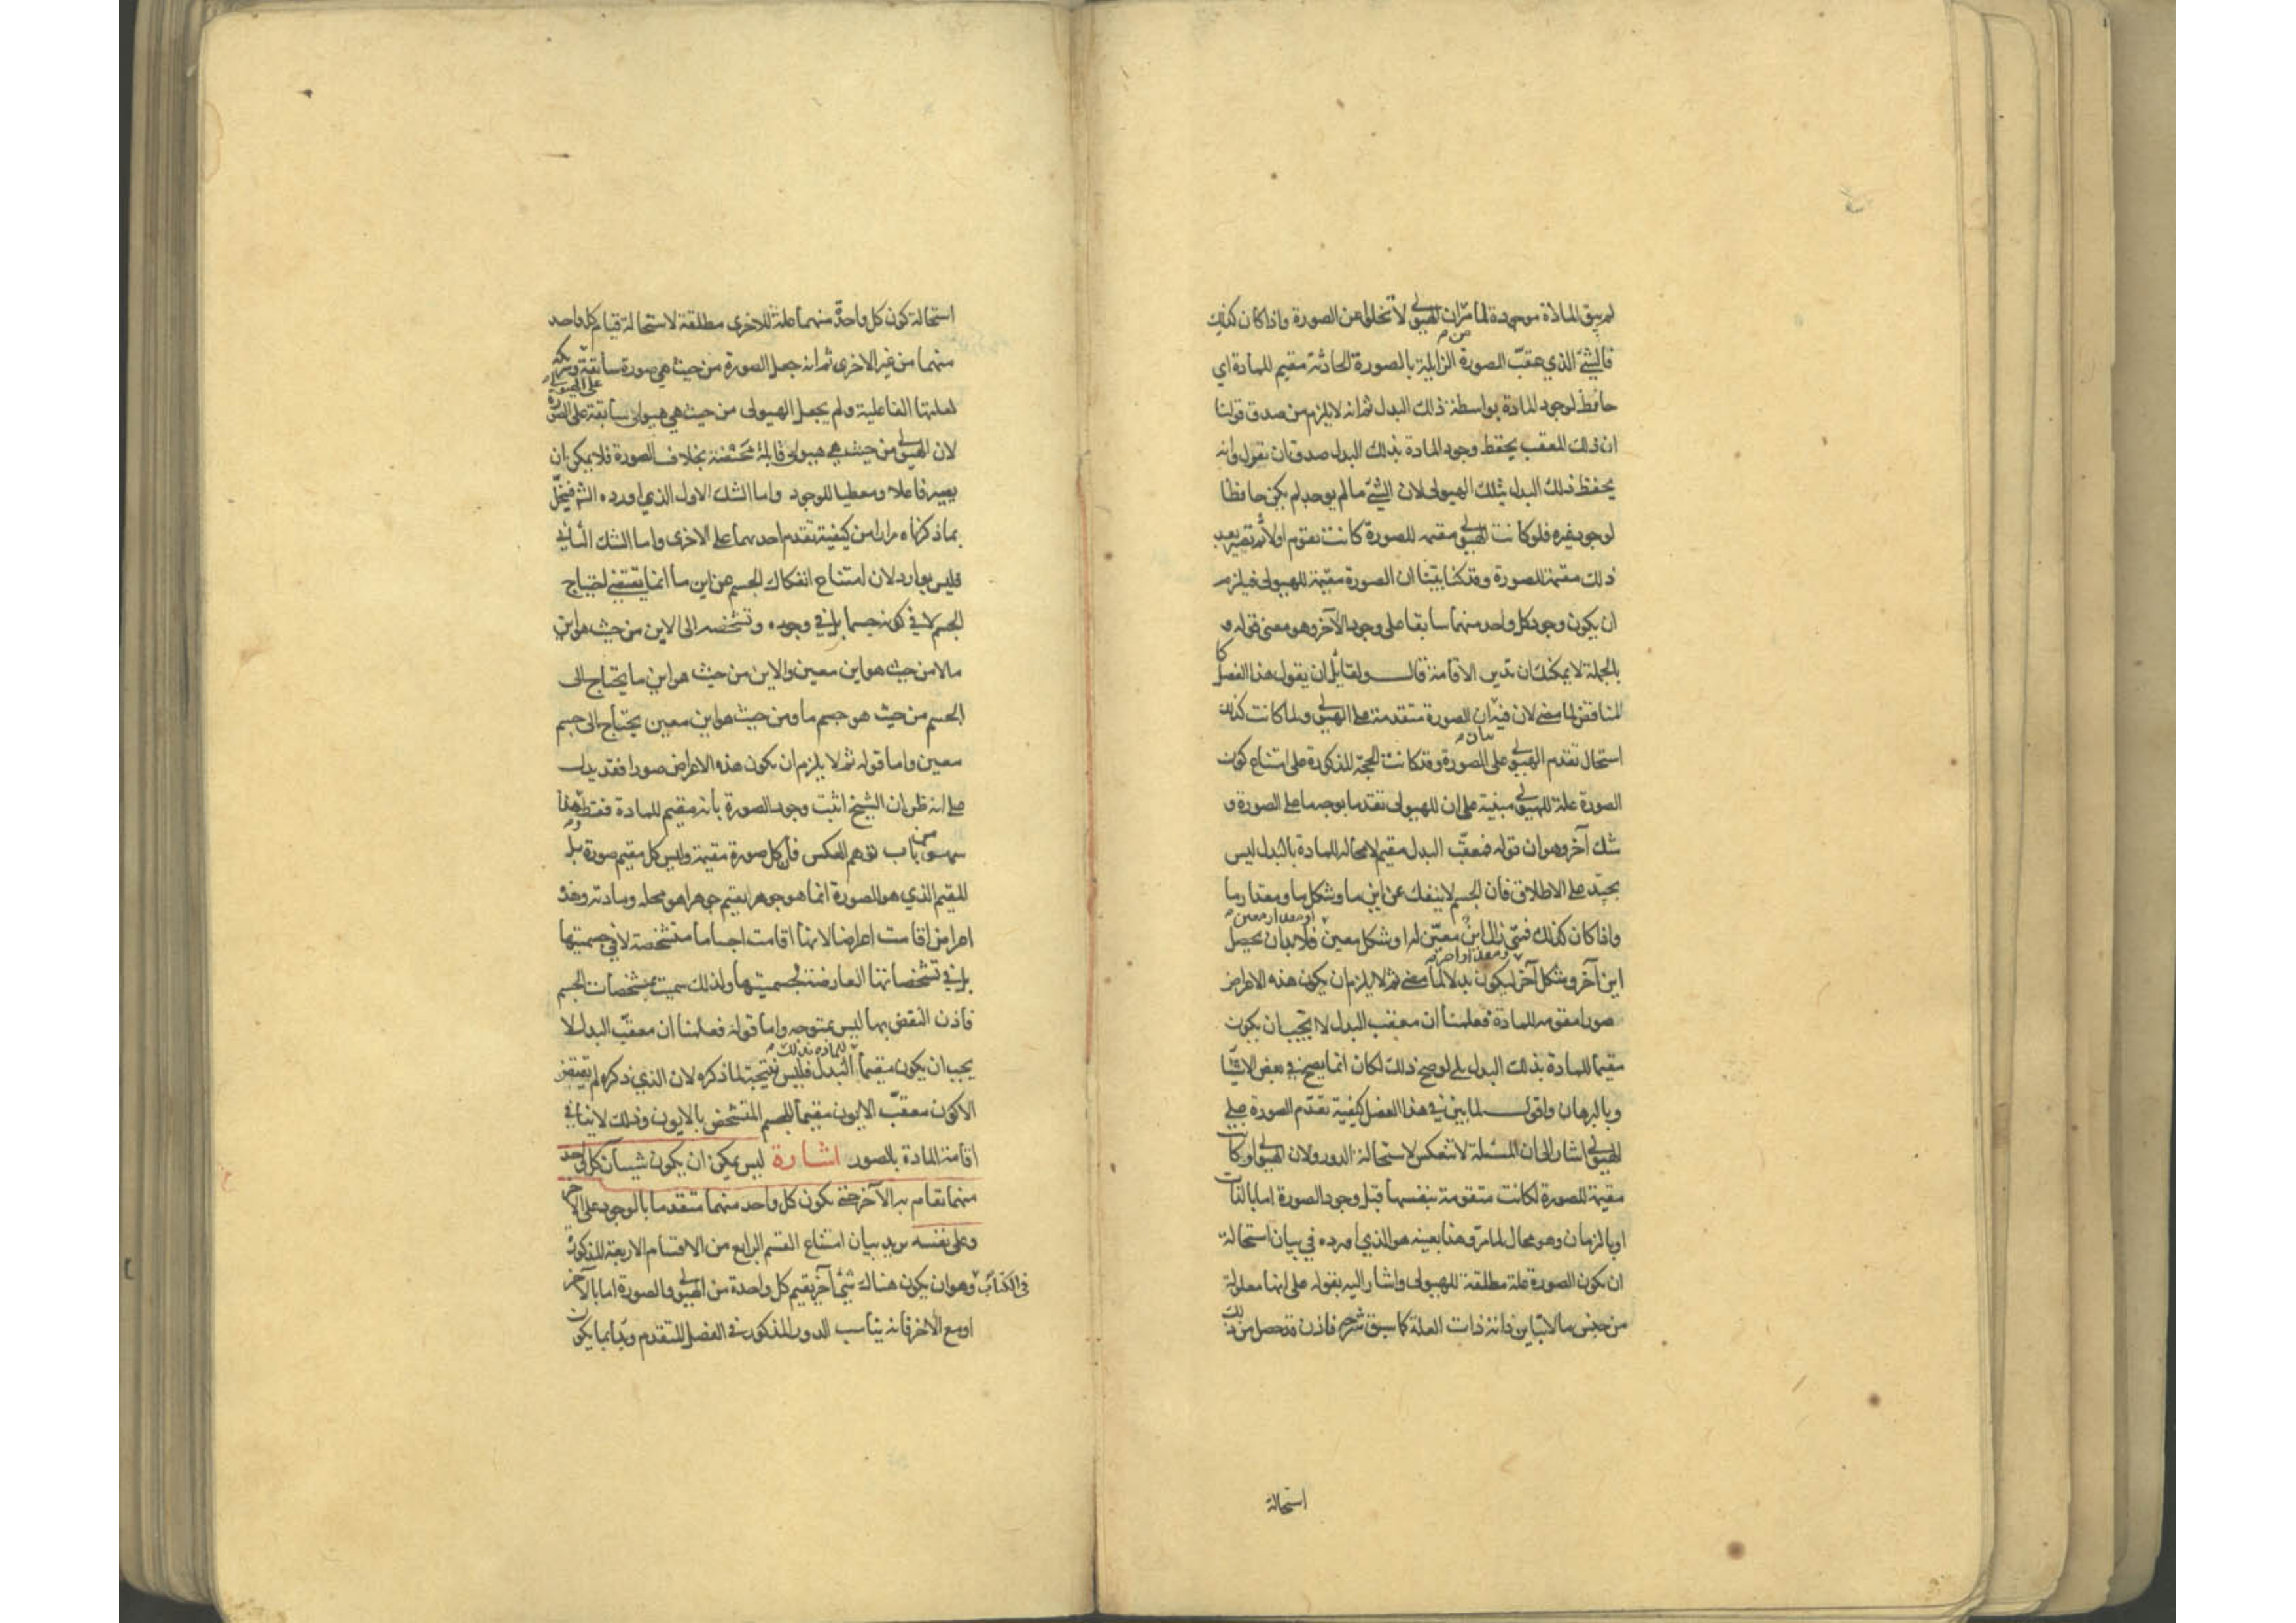 لم يبق المادة موجودة لما مر ان الهيولى لا تخلو عن الصورة واذا كان كذلك
فالشئ الذي عقب الصورة الزايلة بالصورة الحادثة مقيم للمادة اي
حافظ لوجود المادة بواسطة ذلك البدل ثم انه لا يلزم من صدق قولنا
ان ذلك المعقب يحفظ وجود المادة بذلك البدل صدق ان نقول وانه
يحفظ ذلك البدل بتلك الهيولى لان الشئ ما لم يوجد لم يكن حافظا
لوجود غيره فلو كانت الهيولى مقيمة للصورة كانت تقوم اولا ثم تصير بعد
ذلك مقيمة للصورة وقد كنا بينا ان الصورة مقيمة للهيولى فيلزم
ان يكون وجود كل واحد منهما سابقا على وجود الآخر وهو معنى قوله و
بالجملة لا يمكنك ان تدير الاقامة قال ولقائل ان يقول هذا الفصل كا
لمناقض لما مضى لان فيه ان الصورة متقدمة على الهيولى ولما كانت كذلك
استحال تقدم الهيولى على الصورة وقد كانت الحجة المذكورة على امتناع كون
الصورة علة للهيولى مبنية على ان للهيولى تقدما بوجه ما على الصورة و
شك آخر وهو ان قوله فمعقب البدل مقيم لا محالة للمادة بالبدل ليس
بجيد على الاطلاق فان الجسم لا ينفك عن اين ما وشكل ما ومقدار ما
واذا كان كذلك فمتى زال اين معين له او شكل معين او مقدار معين فلا بد ان يحصل
اين آخر وشكل آخر ومقدار آخر ليكون بدلا لما مضى ثم لا يلزم ان يكون هذه الاعراض
صورا مقومة للمادة فعلمنا ان معقب البدل لا يجب ان يكون
مقيما للمادة بذلك البدل بلى لو صح ذلك لكان انما يصح في بعض الاشيا
وبالبرهان واقول لما بين في هذا الفصل كيفية تقدم الصورة على
الهيولى اشار الى ان المسئلة لا تنعكس لاستحالة الدور ولان الهيولى لو كانت
مقيمة للصورة لكانت متقومة بنفسها قبل وجود الصورة اما بالذات
او بالزمان وهو محال لما مر وهذا بعينه هو الذي اورده في بيان استحالة
ان يكون الصورة علة مطلقة للهيولى واشار اليه بقوله على انها معلولة
من جنس ما لا تباين ذاته ذات العلة كما سبق شرحه فاذن قد حصل من ذلك
استحالة
استحالة كون كل واحدة منهما علة للاخرى مطلقة لاستحالة قيام كل واحد
منهما من غير الاخرى ثم انه جعل الصورة من حيث هي صورة سابقة وشريكة
لعلتها الفاعلية ولم يجعل الهيولى من حيث هي هيولى سابقة على الصورة
لان الهيولى من حيث هي هيولى قابلة محضة بخلاف الصورة فلا يمكن ان
يصير فاعلا ومعطيا للوجود واما الشك الاول الذي اورده الش فينحل
بما ذكرناه مرارا من كيفية تقدم احدهما على الاخرى واما الشك الثاني
فليس بوارد لان امتناع انفكاك الجسم عن اين ما انما يقتضي احتياج
الجسم لا في كونه جسما بل في وجوده وتشخصه الى الاين من حيث هو اين
ما لا من حيث هو اين معين والاين من حيث هو اين ما يحتاج الى
الجسم من حيث هو جسم ما ومن حيث هو اين معين يحتاج الى جسم
معين واما قوله ثم لا يلزم ان يكون هذه الاعراض صورا فقد يدل
على انه ظن ان الشيخ اثبت وجود الصورة بانه مقيم للمادة فقط وهذا
سهو من باب توهم العكس فان كل صورة مقيمة وليس كل مقيم صورة بل
المقيم الذي هو الصورة انما هو جوهر يقيم جوهرا هو محله ومادته وهذه
اعراض اقامت اعراضا لانها اقامت اجساما متشخصة لا في جسميتها
بل في تشخصاتها العارضة لجسميتها ولذلك سميت بمشخصات الجسم
فاذن النقض بها ليس بمتوجه واما قوله فعلمنا ان معقب البدل لا
يجب ان يكون مقيما للمادة بذلك البدل فليس نتيجة لما ذكره لان الذي ذكره لم يقتض
الا كون معقب الايون مقيما للجسم المتشخص بالايون وذلك لا ينافي
اقامة المادة بالصور اشارة ليس يمكن ان يكون شيآن كل واحد
منهما يقام به الآخر حتى يكون كل واحد منهما متقدما بالوجود على الآخر
وعلى نفسه يريد بيان امتناع القسم الرابع من الاقسام الاربعة المذكورة
في الكتاب وهو ان يكون هناك شئ آخر يقيم كل واحدة من الهيولى والصورة اما بالآخر
او مع الآخر فانه يناسب الدور المذكور في الفصل المتقدم وبدأ بما يكون